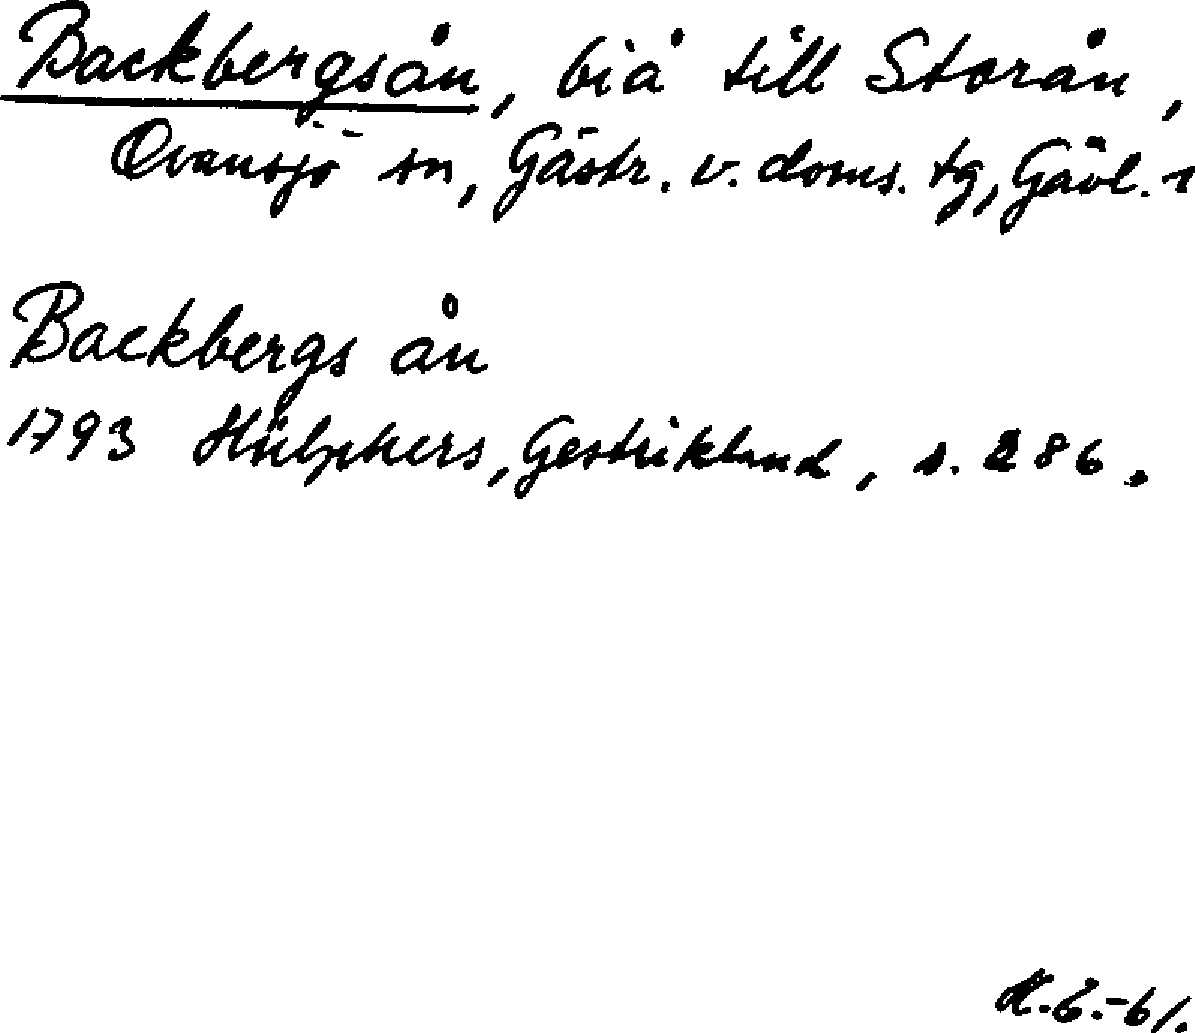 Backbergsån, biå till Storån,
Ovansjö sn, Gästr. v. doms. tg, Gävl. l
Backbergs ån
1793 Hülphers, Gestrikland, s. 286.